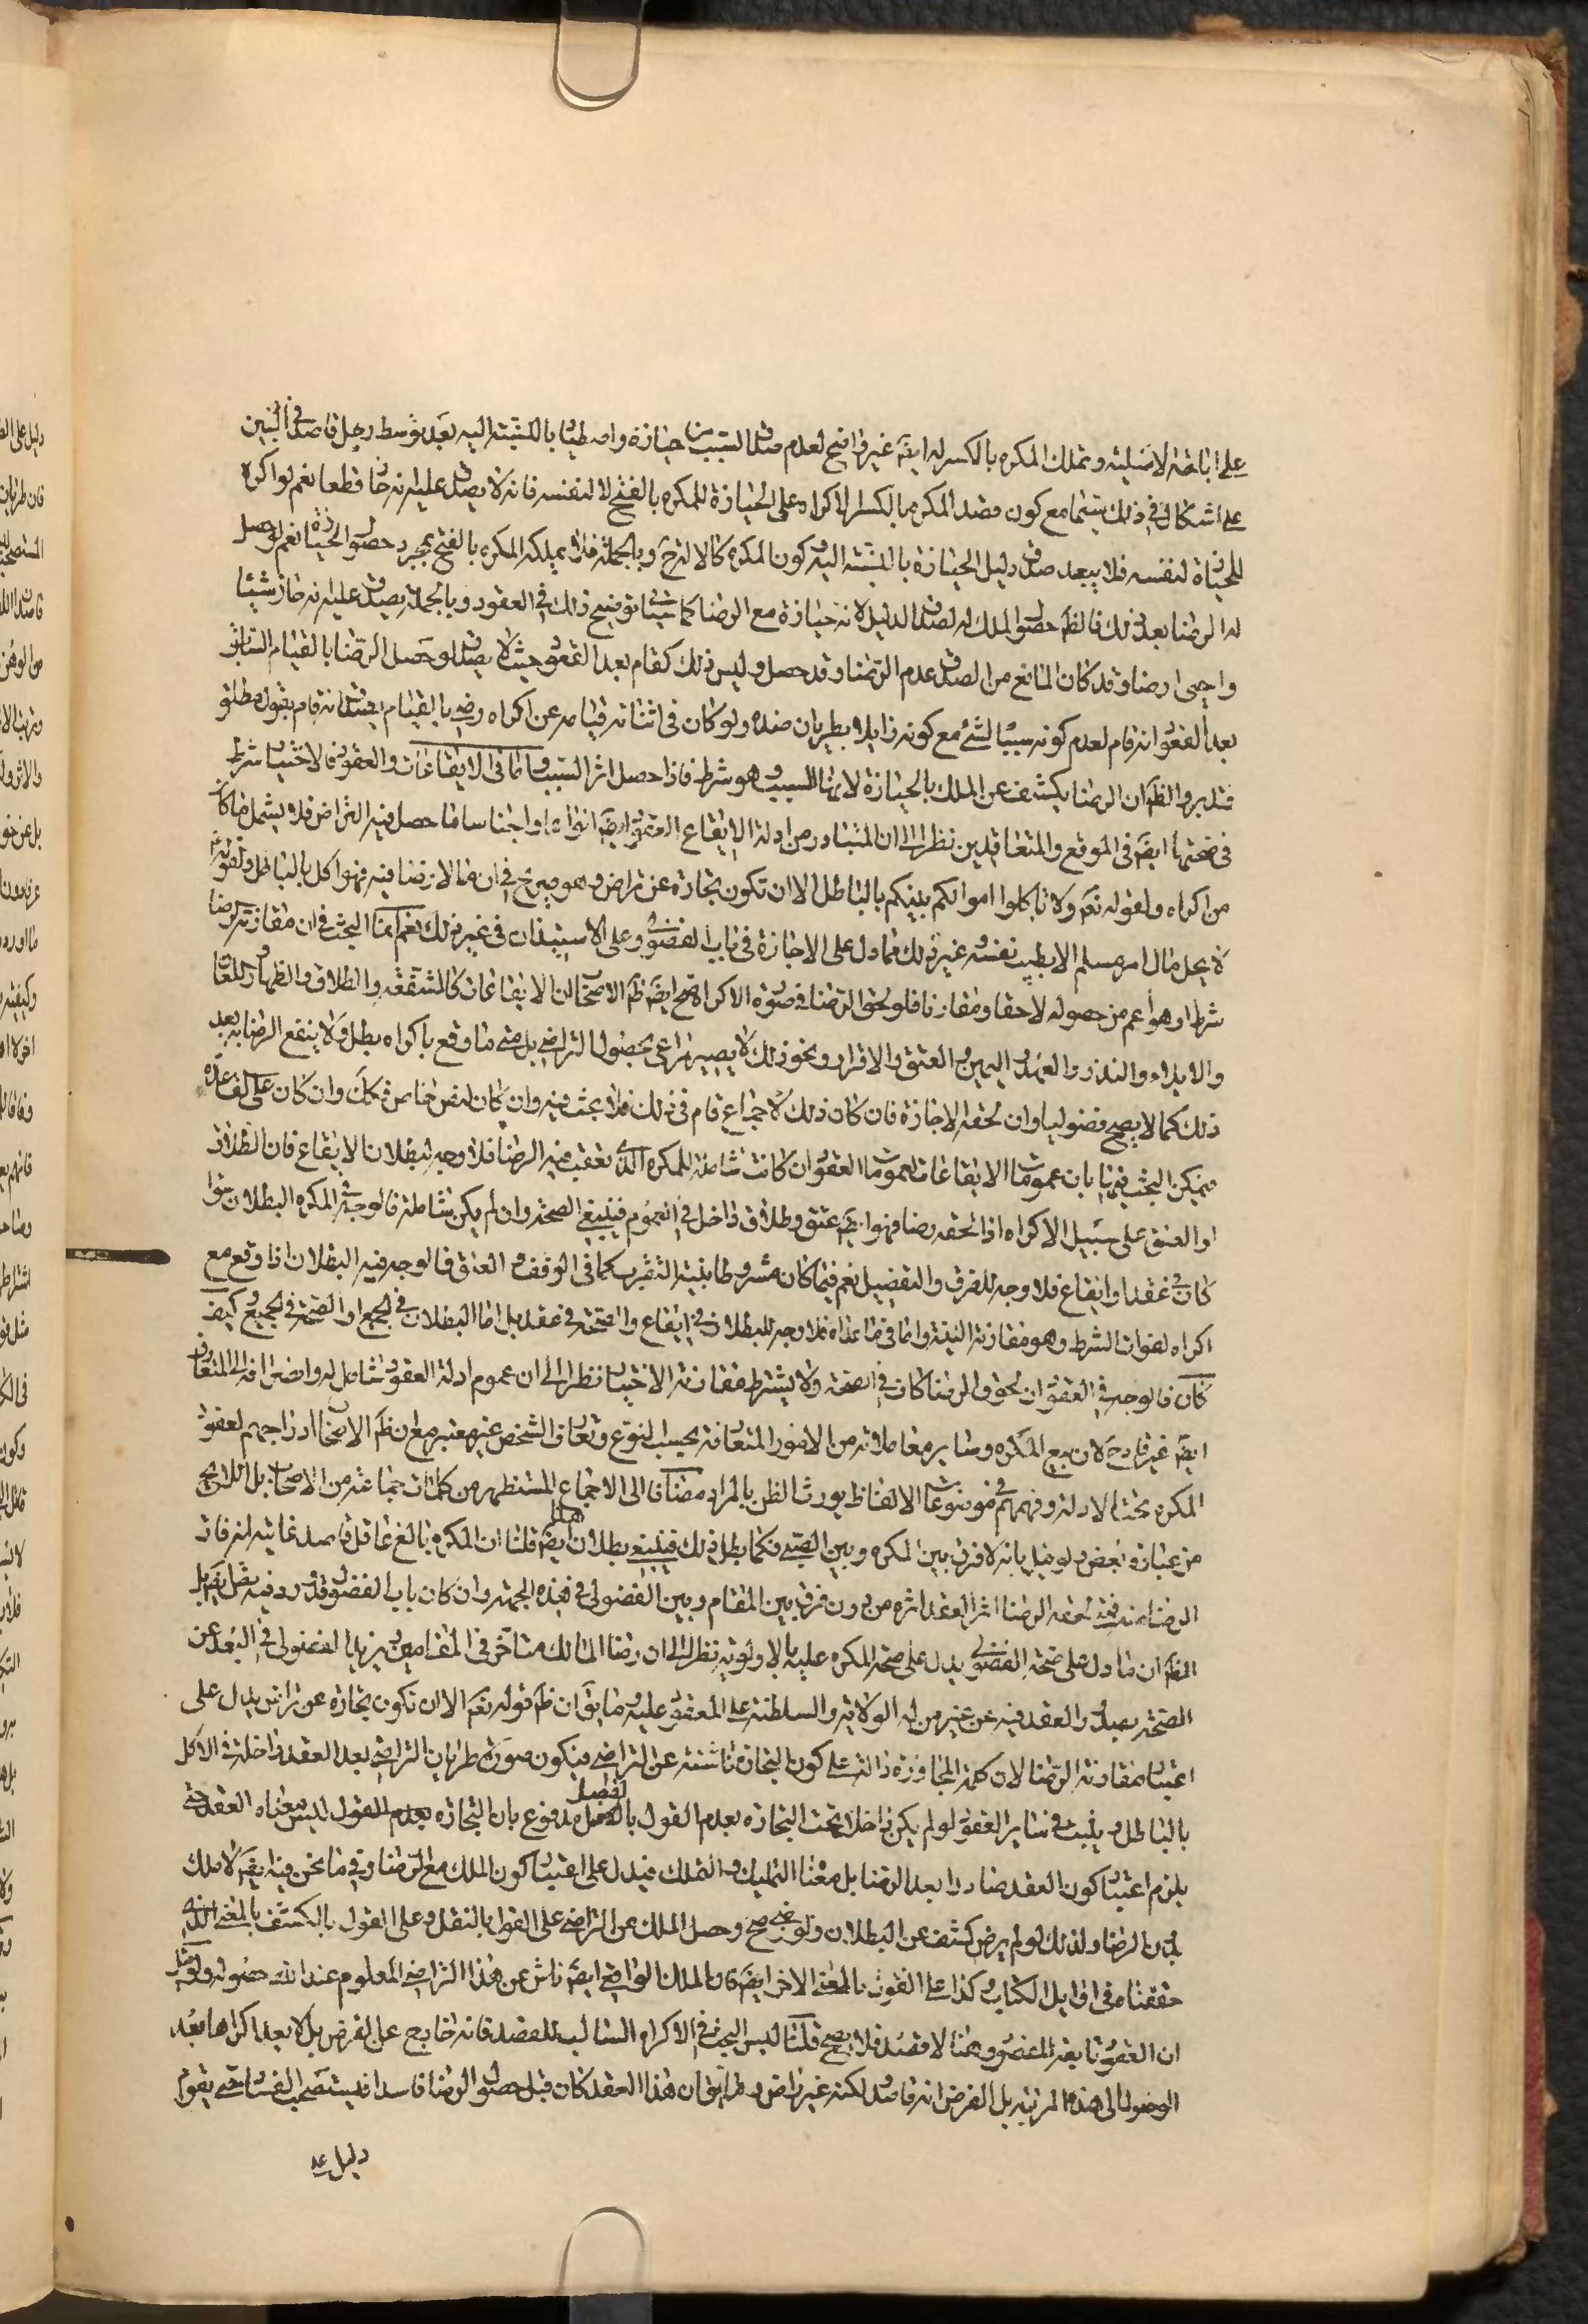 على اباحته الاصلية وتملك المكره بالكسر له ايضا غير واضح لعدم صدق السبب من حيازة واصطياد بالنسبة اليه بعد توسط رجل قاصد في البين
على اشكال في ذلك سيما مع كون قصد المكره بالكسر الاكراه على الحيازة للمكره بالفتح لا لنفسه فانه لا يصدق عليه انه حاز قطعا نعم لو اكره
للحيازة لنفسه فلا يبعد صدق دليل الحيازة بالنسبة اليه وكون المكره كالالة وبالجملة فلا يملكه المكره بالفتح بمجرد حصول الحيازة نعم لو حصل
له الرضا بعد ذلك فالظ حصول الملك له لصدق الدليل لانه حيازة مع الرضا كما سيأتي توضيح ذلك في العقود وبالجملة يصدق عليه انه حاز شيئا
واحيى ارضا وقد كان المانع من الصدق عدم الرضا وقد حصل وليس ذلك كقام بعد القعود حيث لا يصدق لو حصل الرضا بالقيام السابق
بعد القعود انه قام لعدم كونه سببا لشئ مع كونه زايلا بطريان ضده ولو كان في اثنائه قيامه عن اكراه رضي بالقيام يصدق انه قام بقول مطلق
فتدبر والظ ان الرضا يكشف عن الملك بالحيازة لانها السبب وهو شرط فاذا حصل اثر السبب واما في الايقاعات والعقود فالاختيار شرط
في صحتها ايضا في الموقع والمتعاقدين نظرا الى ان المتبادر من ادلة الايقاع العقود ايضا انواعا واجناسا ما حصل فيه التراض فلا يشمل ما كان
من اكراه ولقوله تعم ولا تاكلوا اموالكم بينكم بالباطل الا ان تكون تجارة عن تراض وهو صريح في ان ما لا رضا فيه فهو اكل بالباطل ولقوله ع
لا يحل مال امرء مسلم الا بطيب نفسه وغير ذلك مما دل على الاجازة في باب الفضولي وعلى الاستيذان في غير ذلك نعم انما البحث في ان مقارنة الرضا
شرط او هو اعم من حصوله لاحقا ومقارنا فلو لحق الرضا في صورة الاكراه صح ايضا ظ الاصحاب ان الايقاعات كالشفعة والطلاق والظهار واللعان
والايلاء والنذر والعهد واليمين والعتق والاقرار ونحو ذلك لا يصير مراعى بحصول التراضي بل متى ما وقع باكراه بطل ولا ينفع الرضا به بعد
ذلك كما لا يصح فضوليا وان لحقه الاجازة فان كان ذلك لاجماع قام في ذلك فلا بحث فيه وان كان لنص خاص فكك وان كان على القاعدة
فيمكن البحث فيها بان عمومات الايقاعات كعمومات العقود ان كانت شاملة للمكره الذي تعقب فيه الرضا فلا وجه لبطلان الايقاع فان الطلاق
او العتق على سبيل الاكراه اذا لحقه رضا فهو ايضا عتق وطلاق داخل في العموم فينبغي الصحة وان لم يكن شاملة فالوجه في المكره البطلان سواء
كان في عقد او ايقاع فلا وجه للفرق والتفصيل نعم فيما كان مشروطا بنية التقرب كما في الوقف والعتق فالوجه فيه البطلان اذا وقع مع
اكراه لفوات الشرط وهو مقارنة النية واما في ما عداه فلا وجه للبطلان في ايقاع والصحة في عقد بل اما البطلان في الجميع او الصحة في الجميع كيف
كان فالوجه في العقود ان لحوق الرضا كاف في الصحة ولا يشترط مقارنة الاختيار نظرا الى ان عموم ادلة العقود شامل له وانصرافه الى المتعارف
ايضا غير قادح لان بيع المكره وسائر معاملاته من الامور المتعارفة بحسب النوع وتعارف الشخص غير معتبر مع ان ظ الاصحاب ادراجهم لعقود
المكره تحت الادلة وفهمهم في موضوعات الالفاظ يورث الظن بالمراد مضافا الى الاجماع المستظهر من كلمات جماعة من الاصحاب بل اللايح
من عبارة بعض ولو قيل بانه لا فرق بين المكره وبين الصبي فكما بطل ذلك فينبغي بطلان هذا ايضا قلنا ان المكره بالغ عاقل قاصد غايته انه فات
الرضا منه فمتى لحقه الرضا اثر العقد اثره من دون فرق بين المقام وبين الفضولي في هذه الجهة وان كان باب الفضولي قد ورد فيه نص ايضا بل
الظ ان ما دل على صحة الفضولي يدل على صحة المكره عليه بالاولوية نظرا الى ان رضا المالك متاخر في المقامين ويزيد الفضولي في البعد عن
الصحة بصدور العقد فيه عن غير من له الولاية والسلطنة على المعقود عليه وما يق ان ظ قوله تعم الا ان تكون تجارة عن تراض يدل على
اعتبار مقارنة الرضا لان كلمة المجاوزة دالة على كون التجارة ناشئة عن التراضي فيكون صورة طريان التراضي بعد العقد داخلة في الاكل
بالباطل ويثبت في سائر العقود لو لم يكن داخلا تحت التجارة بعدم القول بالفصل مدفوع بان التجارة ليس معناه العقد حتى
يلزم اعتبار كون العقد صادرا بعد الرضا بل معناه التمليك والتملك فيدل على اعتبار كون الملك مع الرضا وفي ما نحن فيه ايضا لا ملك
بدون الرضا ولذلك لو لم يرض كشف عن البطلان ولو رضي صح وحصل الملك عن التراضي على القول بالنقل وعلى القول بالكشف بالمعنى الذي
حققناه في اوايل الكتاب وكذا على القول بالمعنى الاخر ايضا فان الملك الواقعي ايضا ناش عن هذا التراضي المعلوم عند الله حصوله ولو قيل
ان العقود تابعة للقصود وهنا لا قصد فلا يصح قلنا ليس البحث في الاكراه السالب للقصد فانه خارج على الفرض بل لا يعد اكراها بعد
الوصول الى هذه المرتبة بل الفرض انه قاصد لكنه غير راض وما يق ان هذا العقد كان قبل حصول الرضا فاسدا فيستصحب الفساد حتى يقوم
دليل على